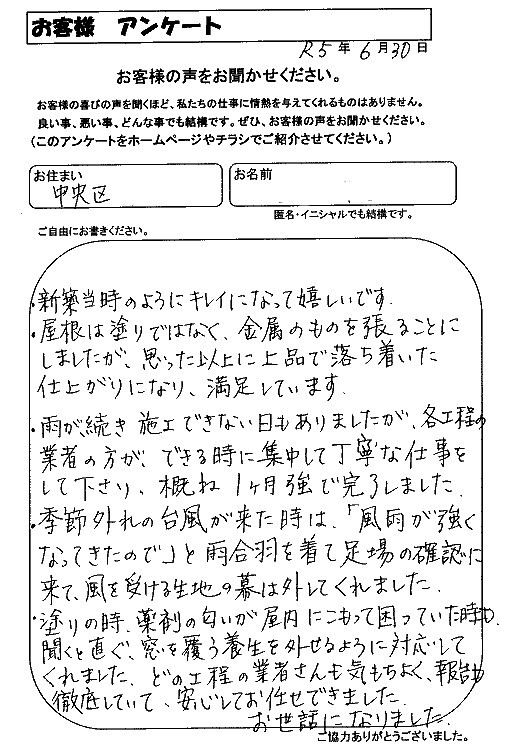 お客様 アンケート
R5年6月30日
お客様の声をお聞かせください。
お客様の喜びの声を聞くほど、私たちの仕事に情熱を与えてくれるものはありません。
良い事、悪い事、どんな事でも結構です。ぜひ、お客様の声をお聞かせください。
(このアンケートをホームページやチラシでご紹介させてください。)
お住まい
中央区
お名前
匿名・イニシャルでも結構です。
ご自由にお書きください。
・新築当時のようにキレイになって嬉しいです.
・屋根は塗りではなく、金属のものを張ることに
しましたが、思った以上に上品で落ち着いた
仕上がりになり、満足しています.
・雨が続き施工できない日もありましたが、各工程の
業者の方が、できる時に集中して丁寧な仕事を
して下さり、概ね1ヶ月強で完了しました.
・季節外れの台風が来た時は、「風雨が強く
なってきたので」と雨合羽を着て足場の確認に
来て、風を受ける生地の幕は外してくれました.
・塗りの時、薬剤の匂いが屋内にこもって困っていた時も、
聞くと直ぐ、窓を覆う養生を外せるように対応して
くれました. どの工程の業者さんも気もちよく、報告も
徹底していて、安心してお任せできました.
お世話になりました.
ご協力ありがとうございました。